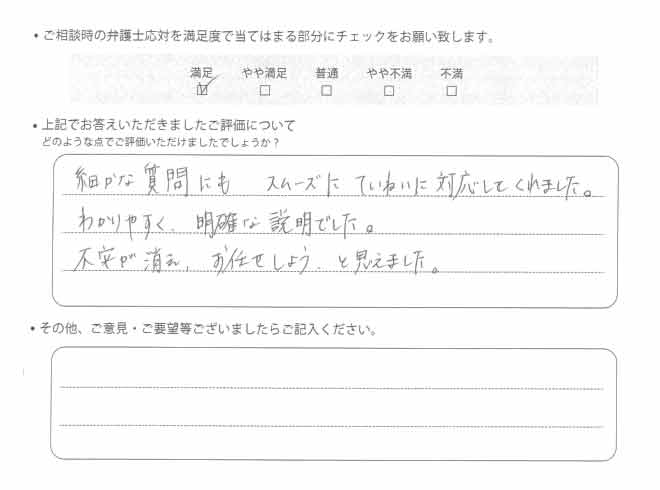 ・ご相談時の弁護士応対を満足度で当てはまる部分にチェックをお願い致します。
満足 やや満足 普通 やや不満 不満
☑ □ □ □ □
・上記でお答えいただきましたご評価について
どのような点でご評価いただけましたでしょうか？
細かな質問にも スムーズに ていねいに対応してくれました。
わかりやすく、明確な説明でした。
不安が消え、お任せしよう、と思えました。
・その他、ご意見・ご要望等ございましたらご記入ください。